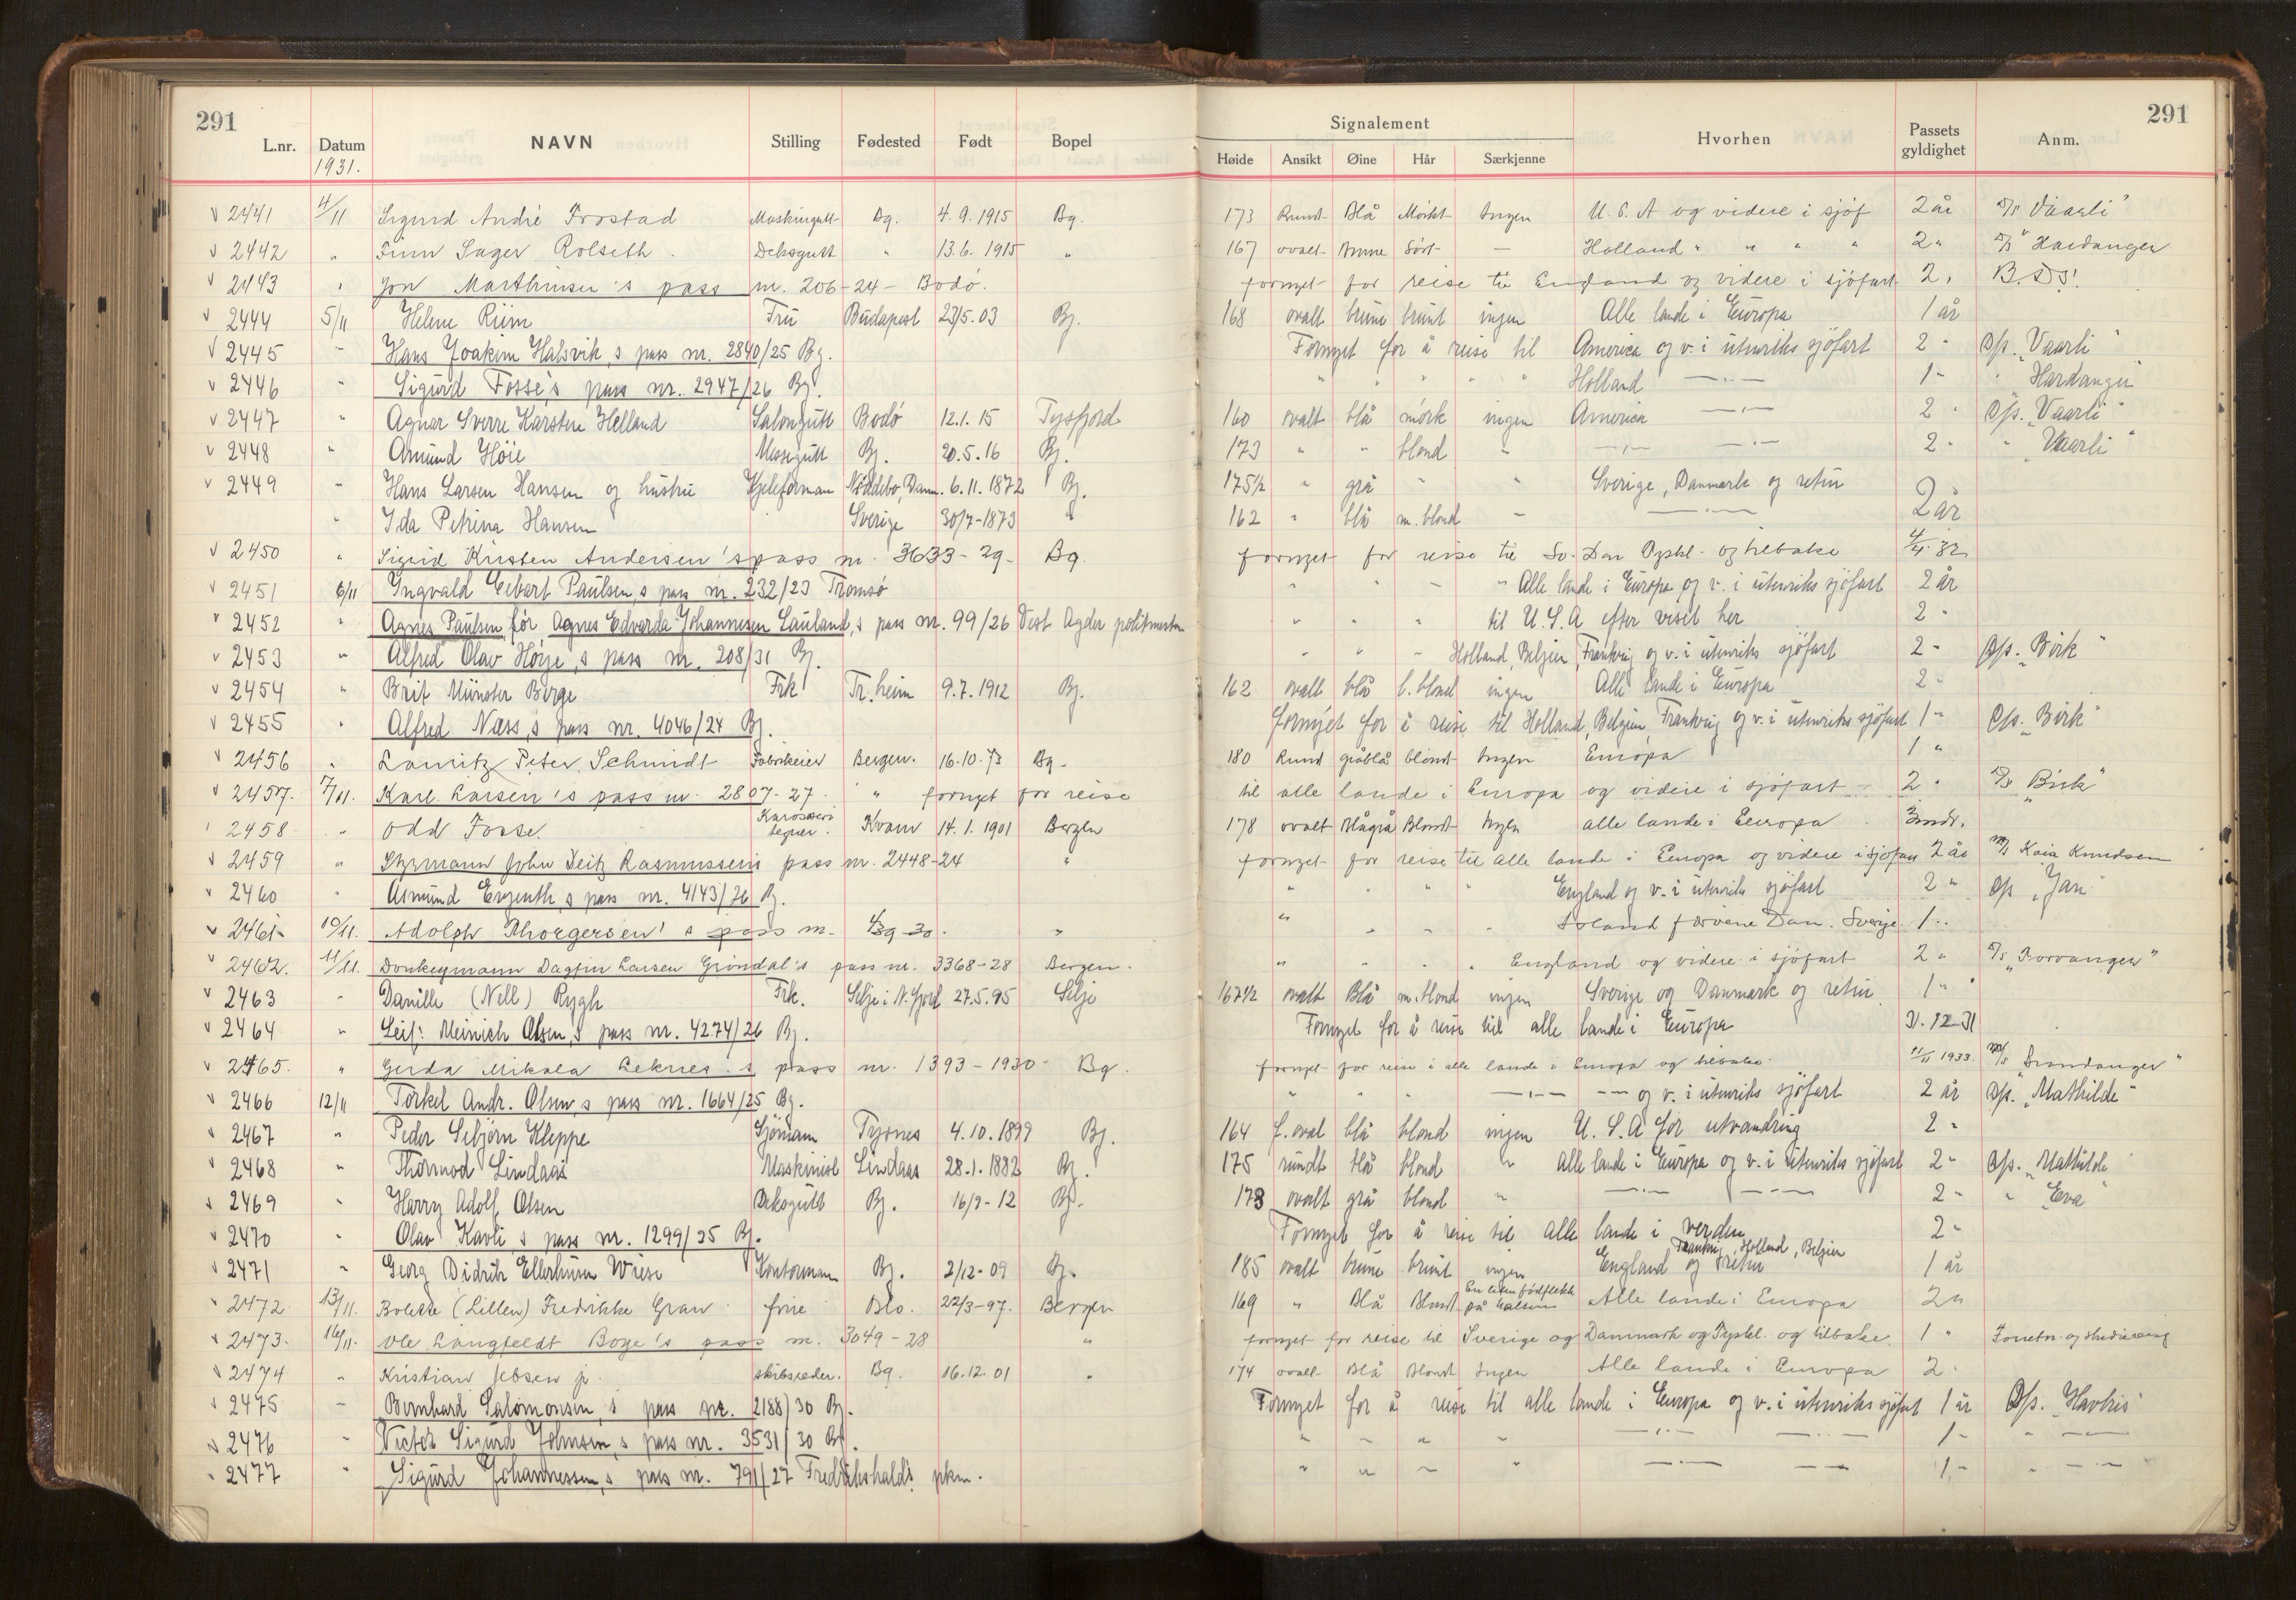 291
291
L.nr. Datum NAVN Stilling Fødested Født Bopel
Signalement
Høide Ansikt Øine Hår Særkjenne Hvorhen Passets gyldighet Anm.
1931.
v 2441 4/11 Sigurd André Frostad Maskingutt Bg. 4.9.1915 Bg. 173 Rundt Blå Mörkt Ingen U.S.A og videre i sjöf 2 år D/S "Vaarli"
v 2442 " Finn Sager Rolseth. Deksgutt " 13.6.1915 " 167 ovalt Brune Sört — Holland " " " " 2 " D/S "Hardanger
v 2443 " Jon Marthinsen's pass nr. 206-24- Bodö. fornyet for reise til England og videre i sjöfart 2 " B.D.S.
v 2444 5/11 Helene Riim Fru Budapest 23/5.03 Bg. 168 ovalt brune brunt ingen Alle lande i Europa 1 år
v 2445 " Hans Joakim Halsvik,s pass nr. 2840/25 Bg. Fornyet for å reise til America og v. i utenriks sjöfart 2 " D/s. "Vaarli"
v 2446 " Sigurd Fosse,s pass nr. 2947/26 Bg. " " " " " Holland —"— 1 " " "Hardanger"
v 2447 " Agnar Sverre Karsten Helland Salongutt Bodö 12.1.15 Tysfjord 160 ovalt blå mörk ingen America —"— 2 " D/s. "Vaarli"
v 2448 " Amund Höie Messegutt Bg. 20.5.16 Bg. 173 " " blond " —"— —"— 2 " " "Vaarli"
v 2449 " Hans Larsen Hansen og hustru Kjeleforman Nöddebo, Danm. 6.11.1872 Bg. 175½ " grå " " Sverige, Danmark og retur
" Ida Petrina Hansen Sverige 30/7-1873 " 162 " blå m.blond " —"— 2 år
v 2450 " Sigrid Kirsten Andersen's pass nr. 3633-29- Bg. fornyet for reise til Sv. Dan Tyskl. og tilbake 4/4.32
v 2451 6/11 Ingvald Eebert Paulsen,s pass nr. 232/23 Tromsö " " " " Alle lande i Europa og v. i utenriks sjöfart 2 år
v 2452 " Agnes Paulsen för Agnes Edvarda Johannesen Lauland,s pass nr. 99/26 Vest Agder politmester " " " til U.S.A efter visit her 2 "
v 2453 " Alfred Olav Höije,s pass nr. 208/31 Bg. " " " Holland, Belgien, Frankrig og v. i utenriks sjöfart 2 " D/s. "Birk"
v 2454 " Brit Münster Berge Frk Tr.heim 9.7.1912 Bg. 162 ovalt blå l.blond ingen Alle lande i Europa 2 "
v 2455 " Alfred Næss,s pass nr. 4046/24 Bg. fornyet for å reise til Holland, Belgien, Frankrig og v. i utenriks sjöfart 1 " D/s. "Birk"
v 2456 " Lauritz Peter Schmidt Fabrikeier Bergen. 16.10.73 Bg. 180 Rund gråblå blondt Ingen Europa 1 "
v 2457. 7/11. Karl Larsen's pass nr. 2807-27. " fornyet for reise til alle lande i Europa og videre i sjöfart 2 " D/s "Birk"
2458 " Odd Fosse. Karosseri tegner. Kvam 14.1.1901 Bergen 178 ovalt Blågrå Blondt Ingen alle lande i Europa 3 mdr.
v 2459 " Styrmann John Deitz Rasmussen's pass nr. 2448-24 " fornyet for reise til alle lande i Europa og videre i sjöfart 2 år M/S Kaia Knudsen
v 2460 " Asmund Ergenth,s pass nr. 4143/26 Bg. " " " " England og v. i utenriks sjöfart 2 " D/s "Jan"
v 2461 10/11. Adolph Thorgersen's pass nr. 439-30. " " " " " Island Færöene Dan. Sverige 1 "
v 2462. 11/11. Donkeymann Dagfin Larsen Gröndal's pass nr. 3368-28 Bergen. " " " " England og videre i sjöfart 2 " D/s "Korvanger"
v 2463 " Danille (Nell) Rygh Frk. Selje i N.fjord 27.5.95 Selje 167½ ovalt Blå m.blond ingen Sverige og Danmark og retur 1 "
v 2464 " Leif Meinich Olsen,s pass nr. 4274/26 Bg. Fornyet for å reise til alle lande i Europa 31.12-31
v 2465. " Gerda Mikala Leknes's pass nr. 1393-1930- Bg. fornyet for reise i alle lande i Europa og tilbake. 11/11 1933. M/S "Brandanger"
v 2466 12/11 Torkel Andr. Olsen,s pass nr. 1664/25 Bg. " " " —"— —"— og v. i utenriks sjöfart 2 år D/s. "Mathilde"
v 2467 " Peder Sebjörn Kleppe Sjömann Tysnes 4.10.1899 Bg. 164 l.oval blå blond ingen U.S.A for utvandring 2 "
v 2468 " Thormod Lindaas Maskinist Lindaas 28.1.1882 Bg. 175 rundt blå blond " Alle lande i Europa og v. i utenriks sjöfart 2 " D/s. "Mathilde
v 2469 " Harry Adolf Olsen Deksgutt Bg. 16/9-12 Bg. 178 ovalt grå blond " —"— —"— 2 " " "Eva"
v 2470 " Olav Kavli,s pass nr. 1299/25 Bg. Fornyet for å reise til alle lande i verden 2 "
v 2471 " Georg Didrik Ellerhusen Wiese Kontormann Bg. 2/12-09 Bg. 185 ovalt brune brunt ingen England Frankrig, Holland, Belgien og retur 1 år
v 2472 13/11. Bolette (Lillen) Fredrikke Gran. frue Oslo. 22/3-97. Bergen 169 " Blå Blondt En liten fødflekk på halsen Alle lande i Europa 2 "
v 2473. 16/11. Ole Langfeldt Boge's pass nr. 3049-28 " fornyet for reise til Sverige og Danmark og Tyskl. og tilbake. 1 "
v 2474 " Kristian Jebsen jr. skibsreder. Bg. 16.12.01 " 174 ovalt Blå Blondt Ingen Alle lande i Europa 2 "
v 2475 " Bernhard Salomonsen,s pass nr. 2188/30 Bg. Fornyet for å reise til alle lande i Europa og v. i utenriks sjöfart 1 år D/s. "Havbris"
v 2476 " Victor Sigurd Johnsen,s pass nr. 3531/30 Bg. " " " " —"— —"— 1 " " —"—
v 2477 " Sigurd Johannessen,s pass nr. 791/27 Fredrikshald's pkm. " " " " —"— —"— 1 " " —"—